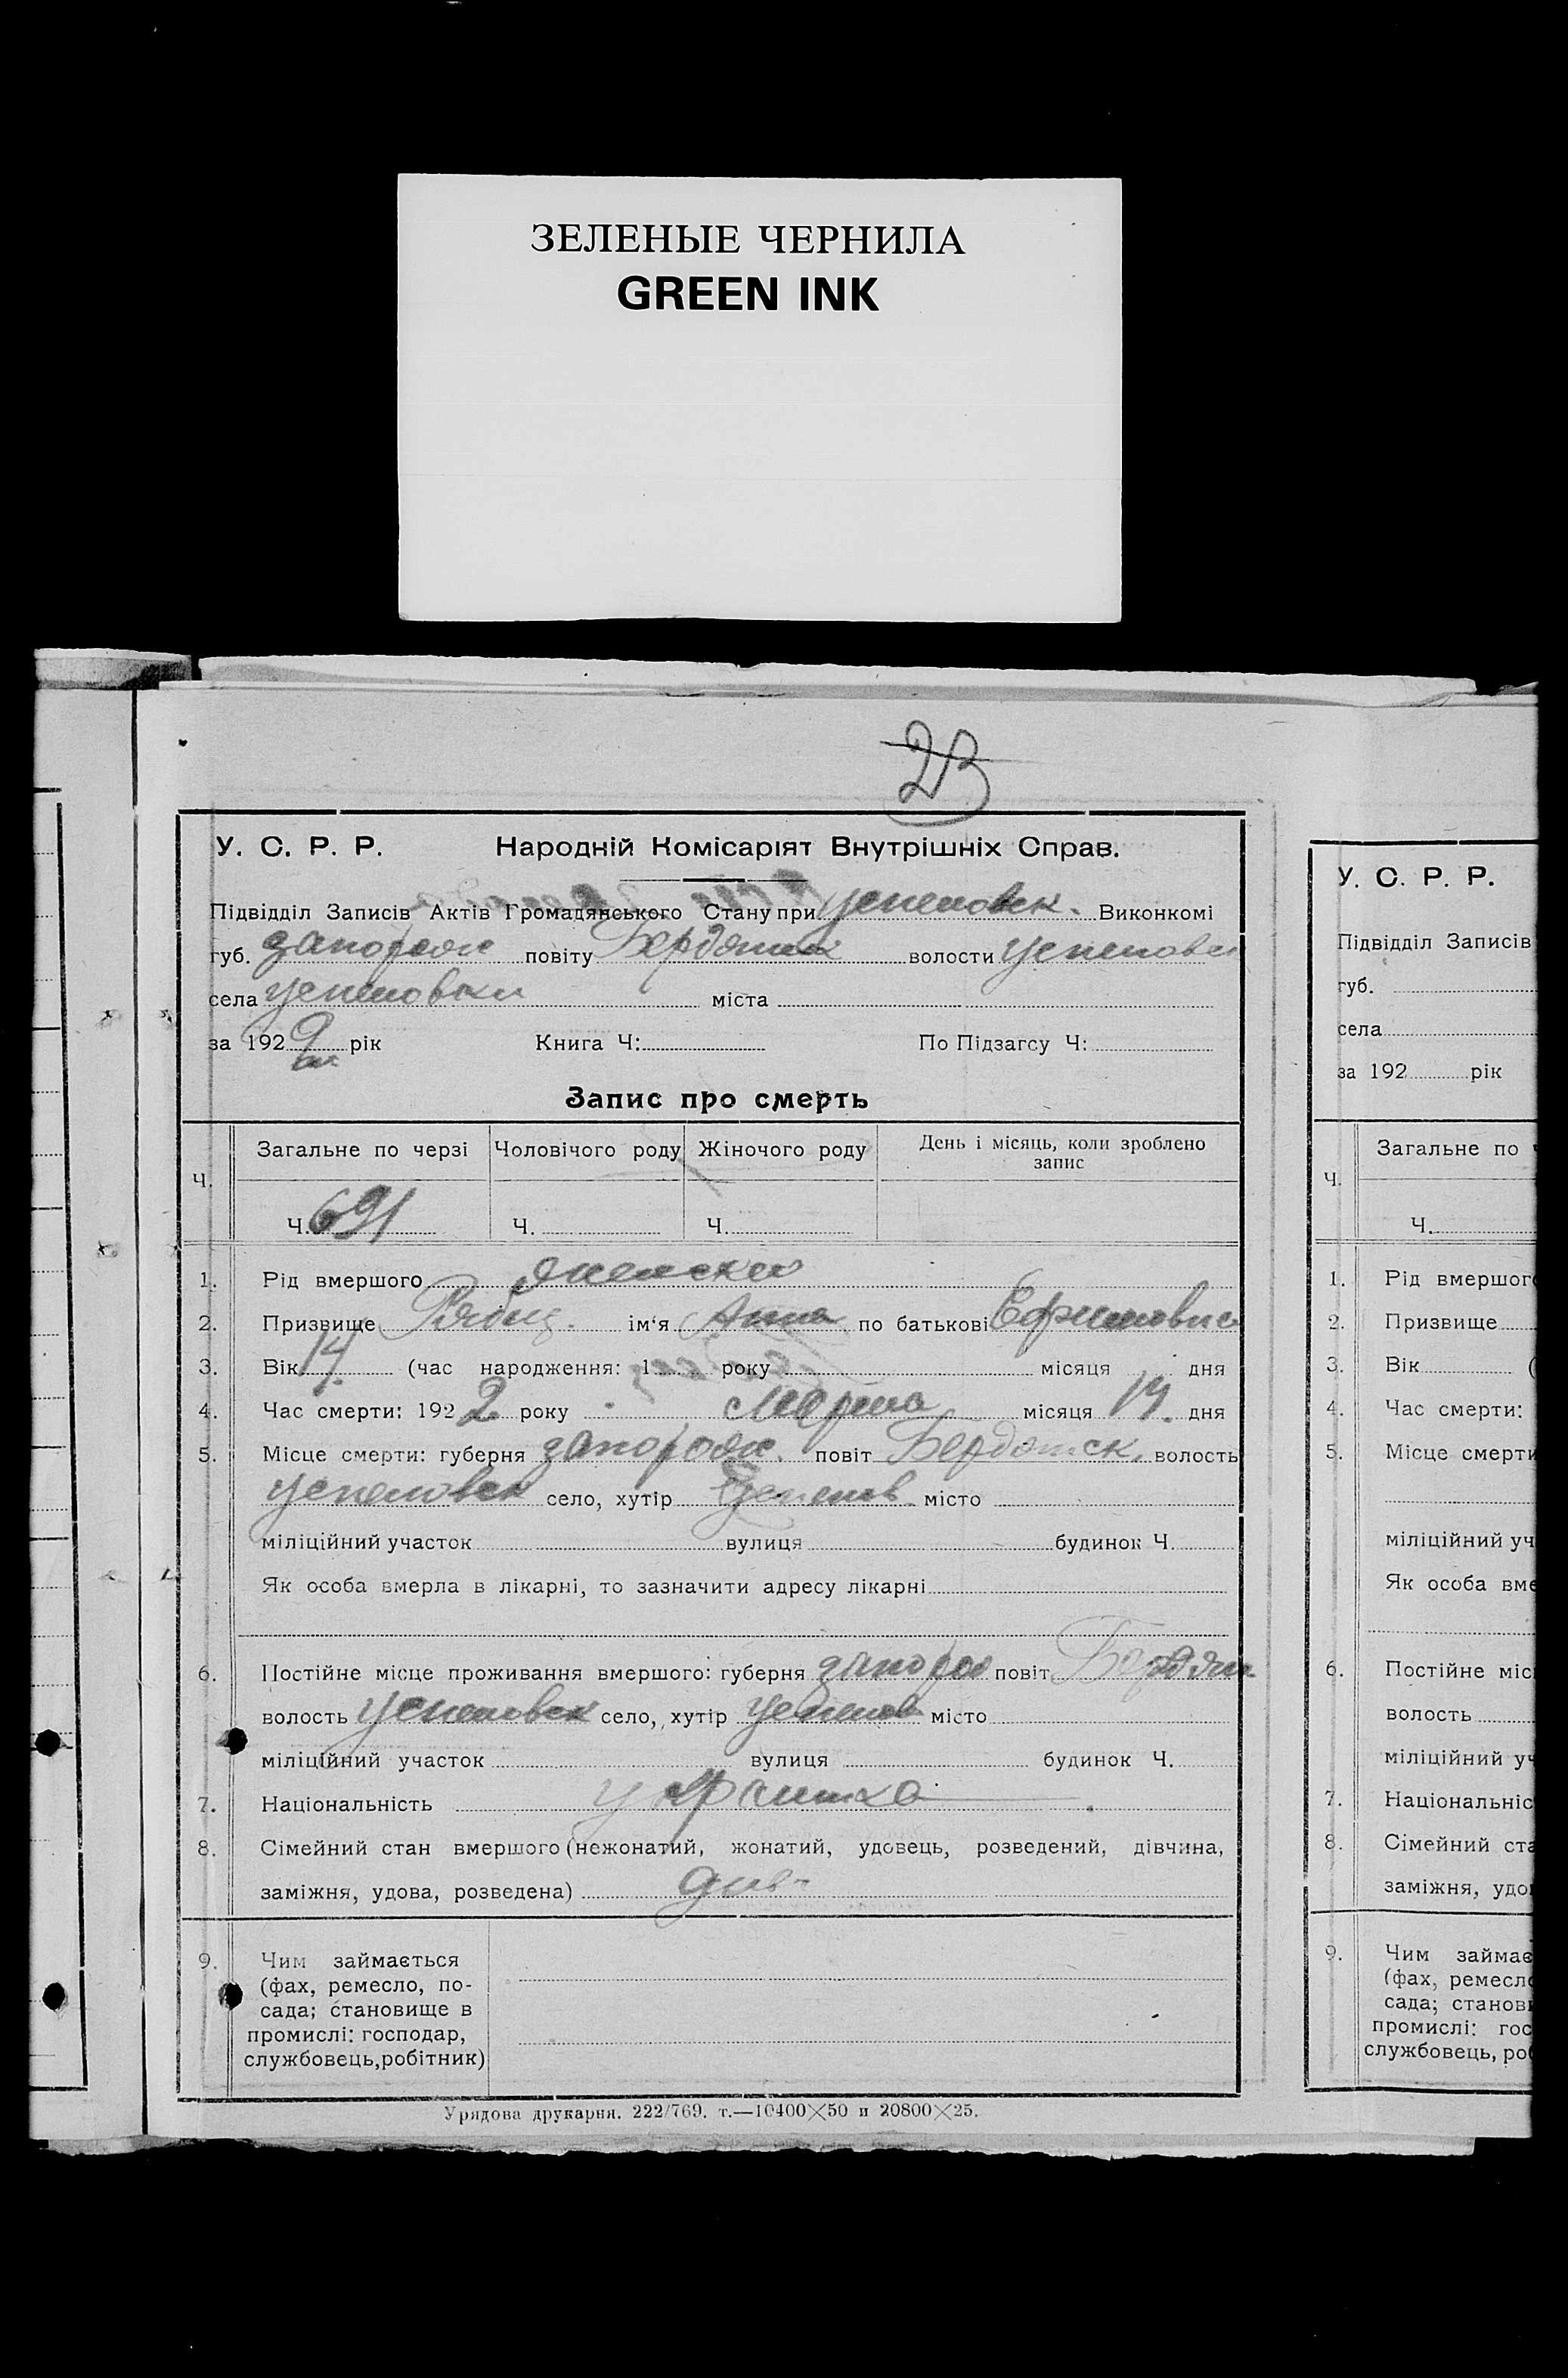 ЗЕЛЕНЫЕ ЧЕРНИЛА
GREEN INK
23
У. С. Р. Р. Народній Комісаріят Внутрішніх Справ.
Підвідділ Записів Актів Громадянського Стану при Успеновск. Виконкомі
губ. Запорож повіту Бердянск волости Успеновск
села Успеновки міста
за 1922 рік Книга Ч: По Підзагсу Ч:
Запис про смерть
Ч. Загальне по черзі Чоловічого роду Жіночого роду День і місяць, коли зроблено
запис
Ч. 691 Ч. Ч.
1. Рід вмершого женский
2. Призвище Рябец. ім'я Анна по батькові Ефимовна
3. Вік 14. (час народження: 1 року місяця дня
4. Час смерти: 1922 року Марта місяця 14. дня
5. Місце смерти: губерня Запорож. повіт Бердянск. волость
Успеновск село, хутір Успенов місто
міліційний участок вулиця будинок Ч.
Як особа вмерла в лікарні, то зазначити адресу лікарні
6. Постійне місце проживання вмершого: губерня Запорож повіт Бердян
волость Успеновск село, хутір Успенов місто
міліційний участок вулиця будинок Ч.
7. Національність
8. Сімейний стан вмершого (нежонатий, жонатий, удовець, розведений, дівчина,
заміжня, удова, розведена) дів-
9. Чим займається
(фах, ремесло, по-
сада; становище в
промислі: господар,
службовець, робітник)
Урядова друкарня. 222/769. т.—10400×50 и 20800×25.
У. С. Р. Р.
Підвідділ Записів
губ.
села
за 192 рік
Ч. Загальне по
Ч.
1. Рід вмершого
2. Призвище
3. Вік (
4. Час смерти:
5. Місце смерти
міліційний уч
Як особа вме
6. Постійне міс
волость
міліційний уч
7. Національніс
8. Сімейний ста
заміжня, удо
9. Чим займає
(фах, ремесло
сада; станови
промислі: гос
службовець, ро